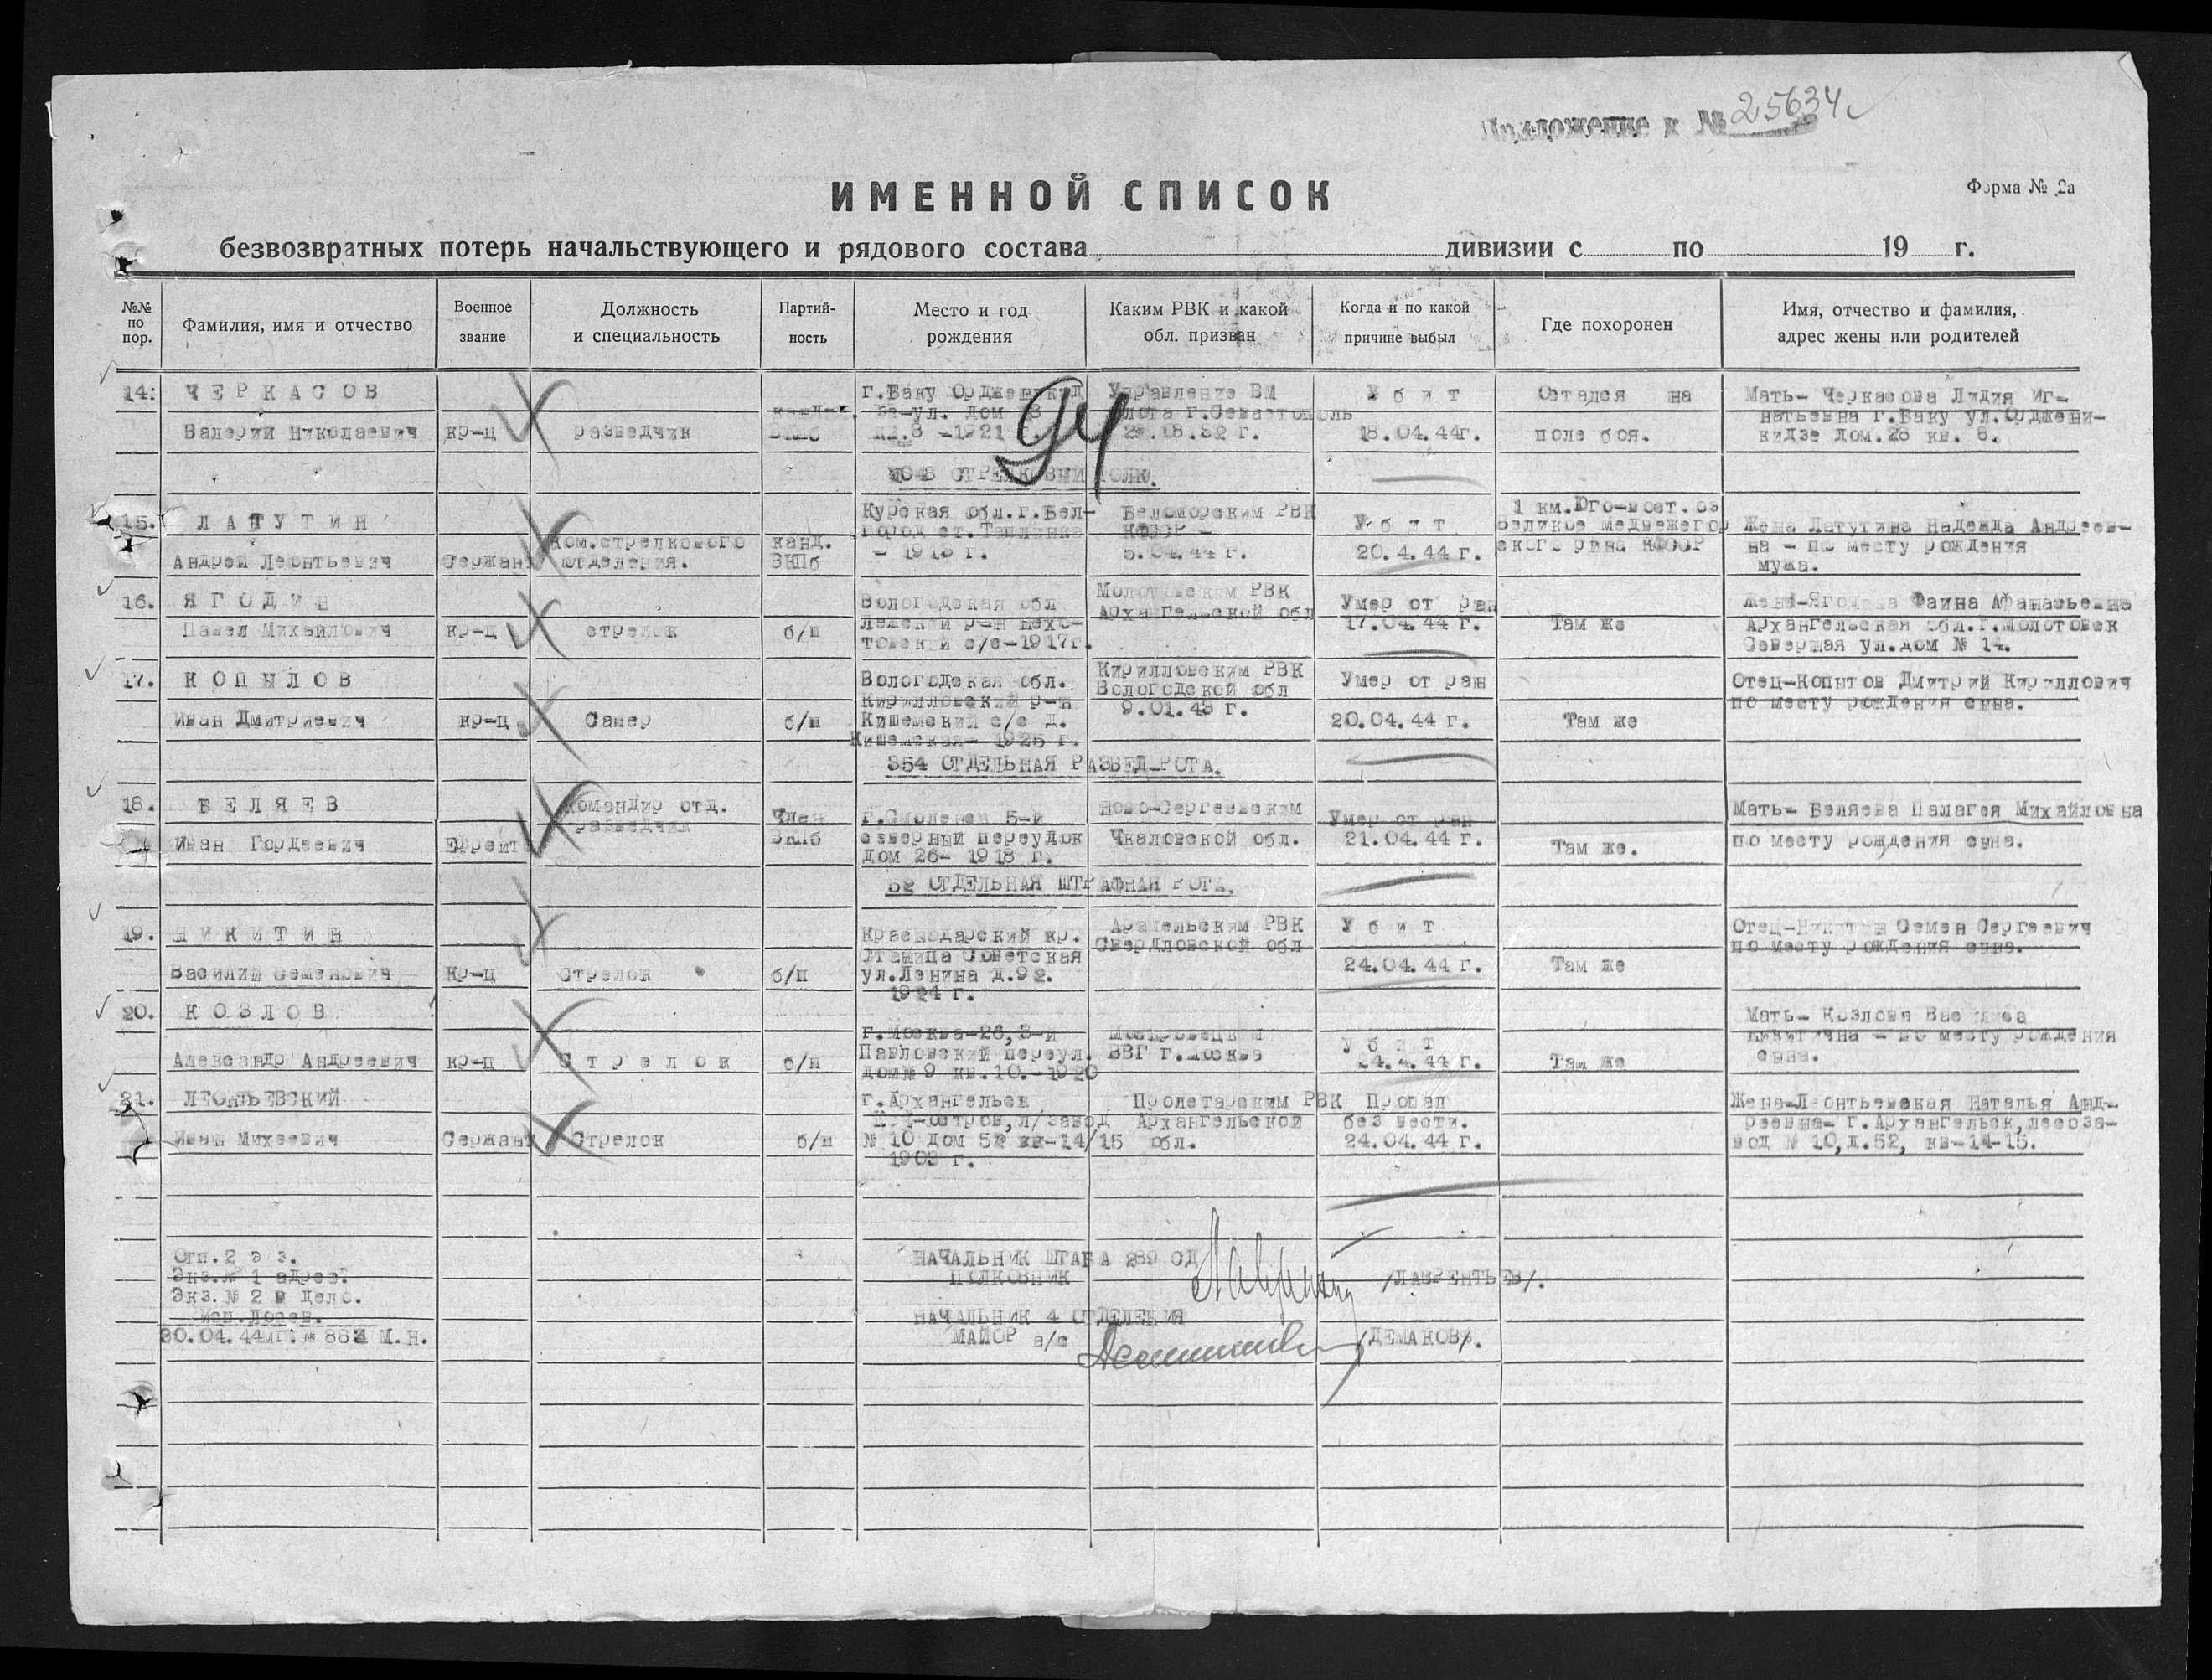 Приложение к № 25634с
ИМЕННОЙ СПИСОК
Форма № 2а
безвозвратных потерь начальствующего и рядового состава дивизии с по 19 г.
№№ по пор.
Фамилия, имя и отчество
Военное звание
Должность и специальность
Партий-ность
Место и год рождения
Каким РВК и какой обл. призван
Когда и по какой причине выбыл
Где похоронен
Имя, отчество и фамилия, адрес жены или родителей
94
14. ЧЕРКАСОВ
Валерий Николаевич
кр-ц
разведчик
ВКПб
г.Баку Орджоникид
за-ул. дом 28
кв.8 -1921 г.
Управление ВМ
флота г.Севастополь
Убит
18.04.44г.
Остался на
поле боя.
Мать- Черкасова Лидия Иг-
натьевна г.Баку ул.Орджени-
кидзе дом.28 кв. 8.
СТРЕЛКОВЫЙ ПОЛК.
15. ЛАПУТИН
Андрей Леонтьевич
Сержант
Ком.стрелкового
отделения.
канд.
ВКПб
Курская обл.г.Бел-
город ст.
г.
Беломорским РВК
КФССР -
5.04.44 г.
Убит
20.4.44 г.
1 км.Юго-вост.оз
великое медвежегор
ского рина КФССР
Жена Лапутина Надежда Андреев-
на - по месту рождения
мужа.
16. ЯГОДИН
Павел Михайлович
кр-ц
стрелок
б/п
Вологодская обл
с/с-1917г.
Молотовским РВК
Архангельской обл
Умер от ран
17.04.44 г.
Там же
Жена-Ягодина Фаина Афанасьевна
Архангельская обл.г.Молотовск
Северная ул.дом № 14.
17. КОПЫЛОВ
Иван Дмитриевич
кр-ц
Сапер
б/п
Вологодская обл.
Кирилловский р-н
Кишемский с/с д.
Кишемская- 1925 г.
Кирилловским РВК
Вологодской обл
9.01.43 г.
Умер от ран
20.04.44 г.
Там же
Отец-Копытов Дмитрий Кириллович
по месту рождения сына.
354 ОТДЕЛЬНАЯ РАЗВЕД-РОТА.
18. БЕЛЯЕВ
Иван Гордеевич
Ефрейт
Командир отд.
разведчик
Член
ВКПб
г.Смоленск 5-й
северный переулок
дом 26- 1918 г.
Ново-Сергеевским
Чкаловской обл.
Умер от ран
21.04.44 г.
Там же.
Мать- Беляева Палагея Михайловна
по месту рождения сына.
52 ОТДЕЛЬНАЯ ШТРАФНАЯ РОТА.
19. НИКИТИН
Василий Семенович
Кр-ц
Стрелок
б/п
Краснодарский кр.
Станица Советская
ул.Ленина д.92.
1924 г.
Арамельским РВК
Свердловской обл
Убит
24.04.44 г.
Там же
Отец-Никитин Семен Сергеевич
по месту рождения сына.
20. КОЗЛОВ
Александр Андреевич
кр-ц
Стрелок
б/п
г.Москва-26,3-й
Павловский переул.
дом№9 кв.10.-1920
Москворецким
ВВГ г.Москва
Убит
24.4.44 г.
Там же
Мать- Козлова Василиса
Никитична - по месту рождения
сына.
21. ЛЕОНТЬЕВСКИЙ
Иван Михеевич
Сержант
Стрелок
б/п
г.Архангельск
л/завод
№ 10 дом 52 кв-14/15
1903 г.
Пролетарским РВК
Архангельской
обл.
Пропал
без вести.
24.04.44 г.
Жена-Леонтьевская Наталья Анд-
реевна- г.Архангельск,лесоза-
вод № 10,д.52, кв-14-15.
Отп.2 экз.
Экз.№ 1 адрес.
Экз.№ 2 в дело.
30.04.44г. М.Н.
НАЧАЛЬНИК ШТАБА 289 СД
ПОЛКОВНИК
/ЛАВРЕНТЬЕВ/.
НАЧАЛЬНИК 4 ОТДЕЛЕНИЯ
МАЙОР а/с
/ДЕМАКОВ/.